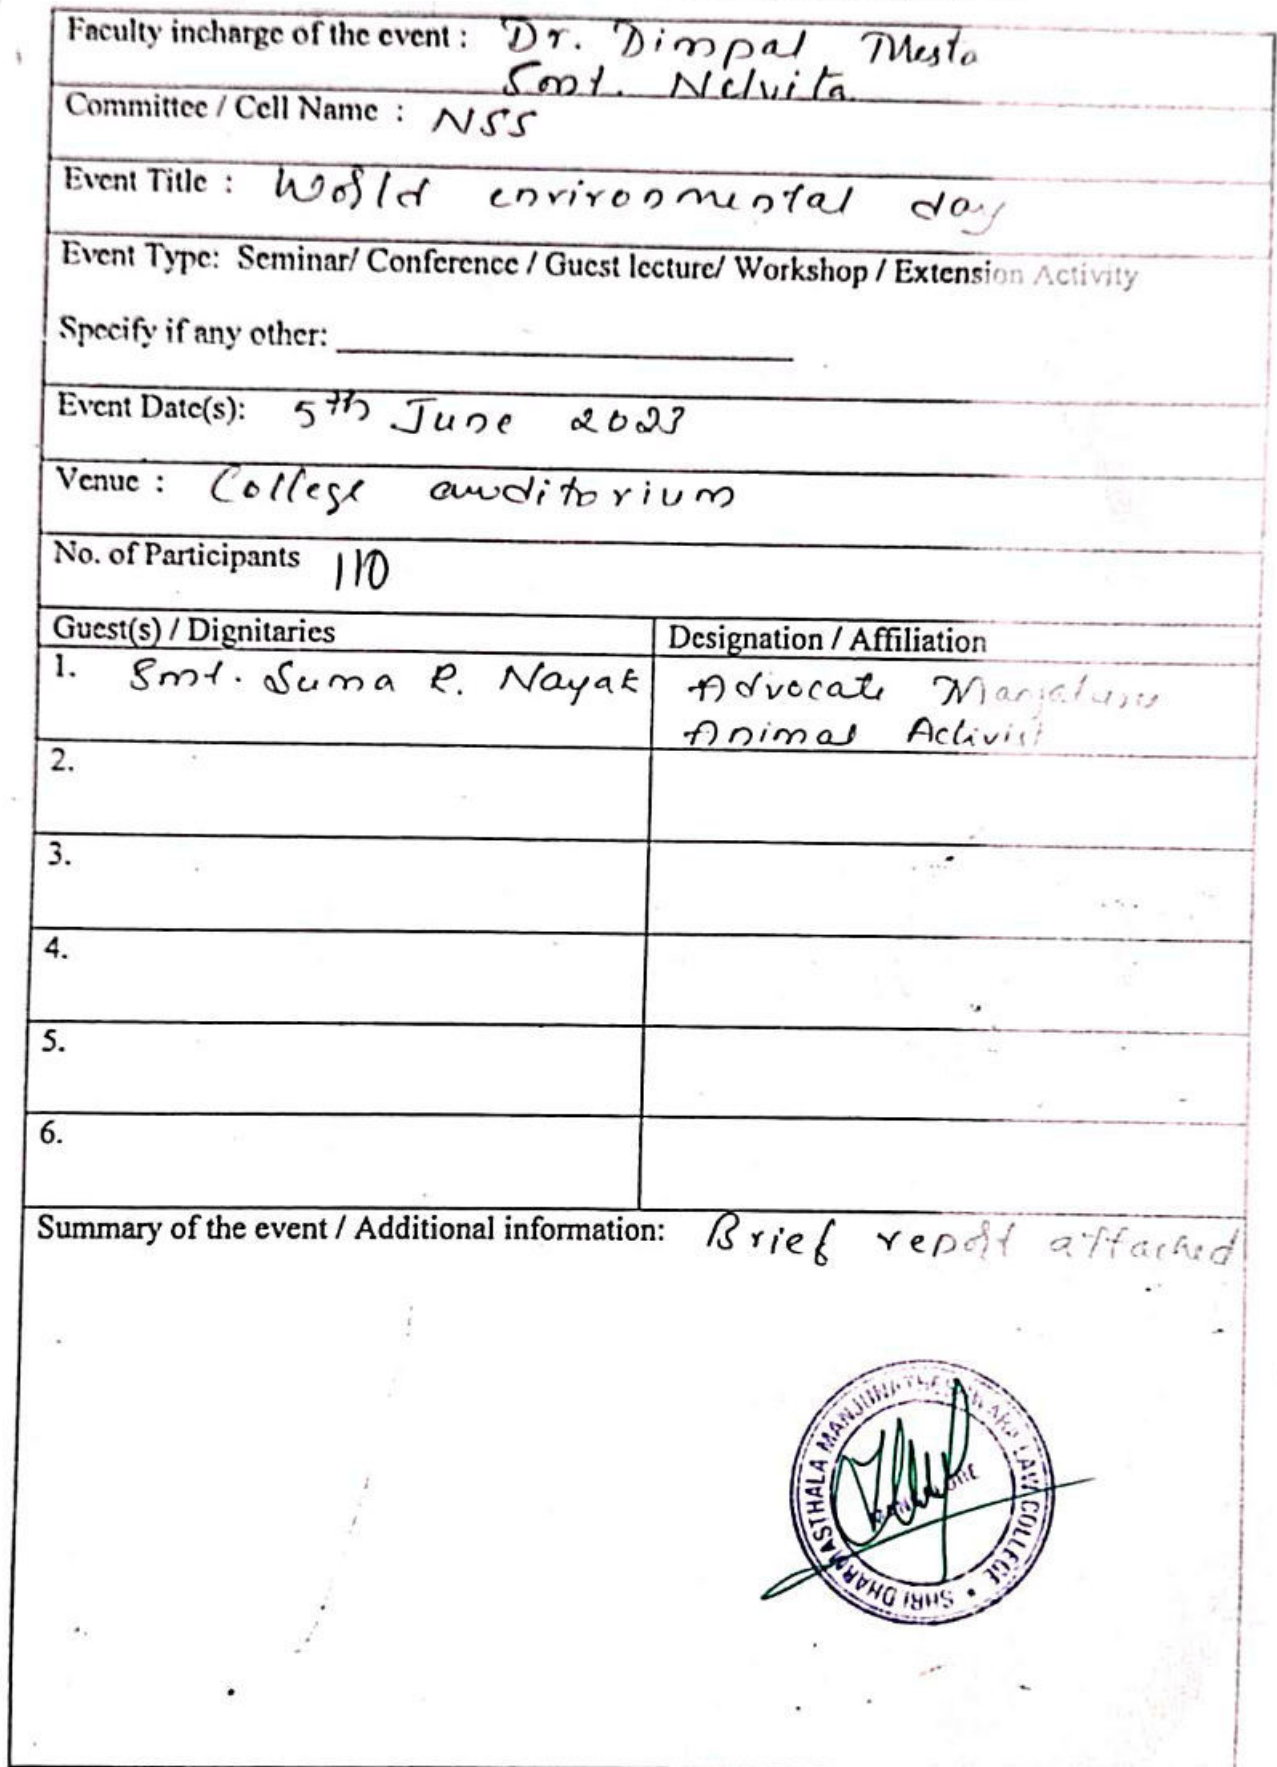 Faculty incharge of the event : Dr. Dimpal Mesta
Smt. Nelvita
Committee / Cell Name : NSS
Event Title : World environmental day
Event Type: Seminar/ Conference / Guest lecture/ Workshop / Extension Activity
Specify if any other:
Event Date(s): 5th June 2023
Venue : College auditorium
No. of Participants 110
Guest(s) / Dignitaries Designation / Affiliation
1. Smt. Suma R. Nayak Advocate Mangaluru
Animal Activist
2.
3.
4.
5.
6.
Summary of the event / Additional information: Brief report attached
SHRI DHARMASTHALA MANJUNATHESHWARA LAW COLLEGE
MANGALORE